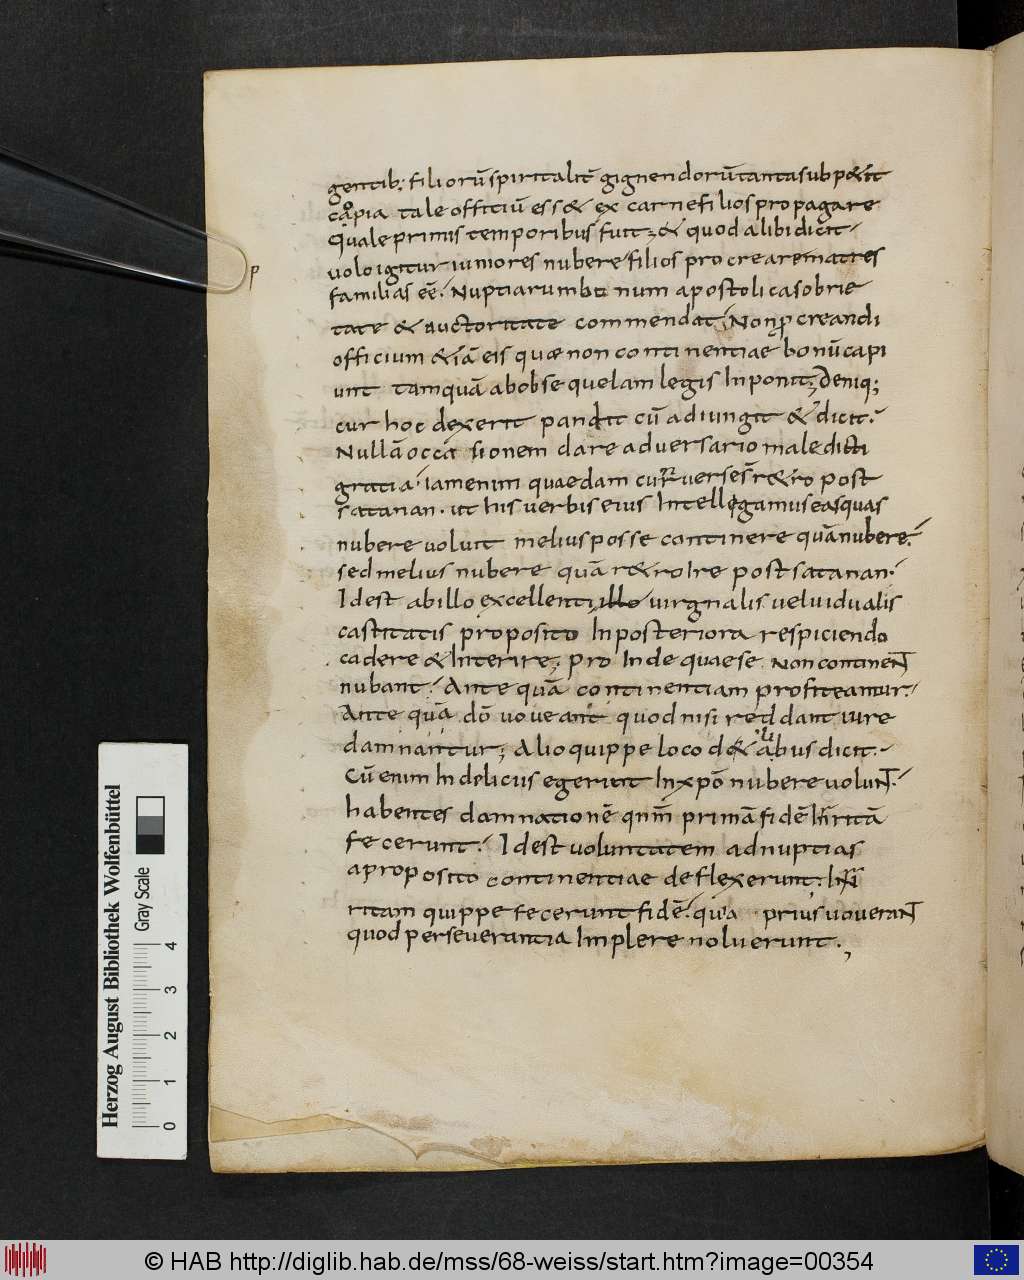 gentib; filiorū spiritaliū gignendorū tanta subpetit
copia tale officiū esset ex carne filios propagare
Quale primis temporibus fuit; et quod alibi dicit
volo igitur iuniores nubere filios procreare matres
familias eē. Nuptiarum bo num apostolica sobrie
tate et auctoritate commendat; Non p̄ creandi
officium etiā eis quae non continentiae bonū capi
unt tamquā ab obsequelam legis Inponit; Deniq;
cur hoc dexerit pandit cū adiungit et dicit.
Nullā occa sionem dare adversario maledicti
gratia. iam enim quaedam cuueīse sr̄ retro post
satanan. ut his verbis eius Intellegamus eas quas
nubere voluit melius posse continere quā nubere.
sed melius nubere quā retro Ire post satanan.
Idest ab illo excellenti illo virgnalis vel vidualis
castitatis proposito In posteriora respiciendo
cadere et Interire; pro Inde quae se non continent
nubant. Ante quā continentiam profiteantur.
Ante quā dō voveant quod nisi reddant iure
damnantur; Alio quippe loco de talibus dicit.
Cū enim In deliciis egerint In xpō nubere volunt
habentes damnationē qnm̄ primā fidē Irritā
fecerunt. Idest voluntatem ad nuptias
a proposito continentiae deflexerunt. Ir
ritam quippe fecerunt fidē. qua prius voverant
quod perseverantia Implere noluerunt.
P
Herzog August Bibliothek Wolfenbüttel
Gray Scale
0 1 2 3 4
© HAB http://diglib.hab.de/mss/68-weiss/start.htm?image=00354